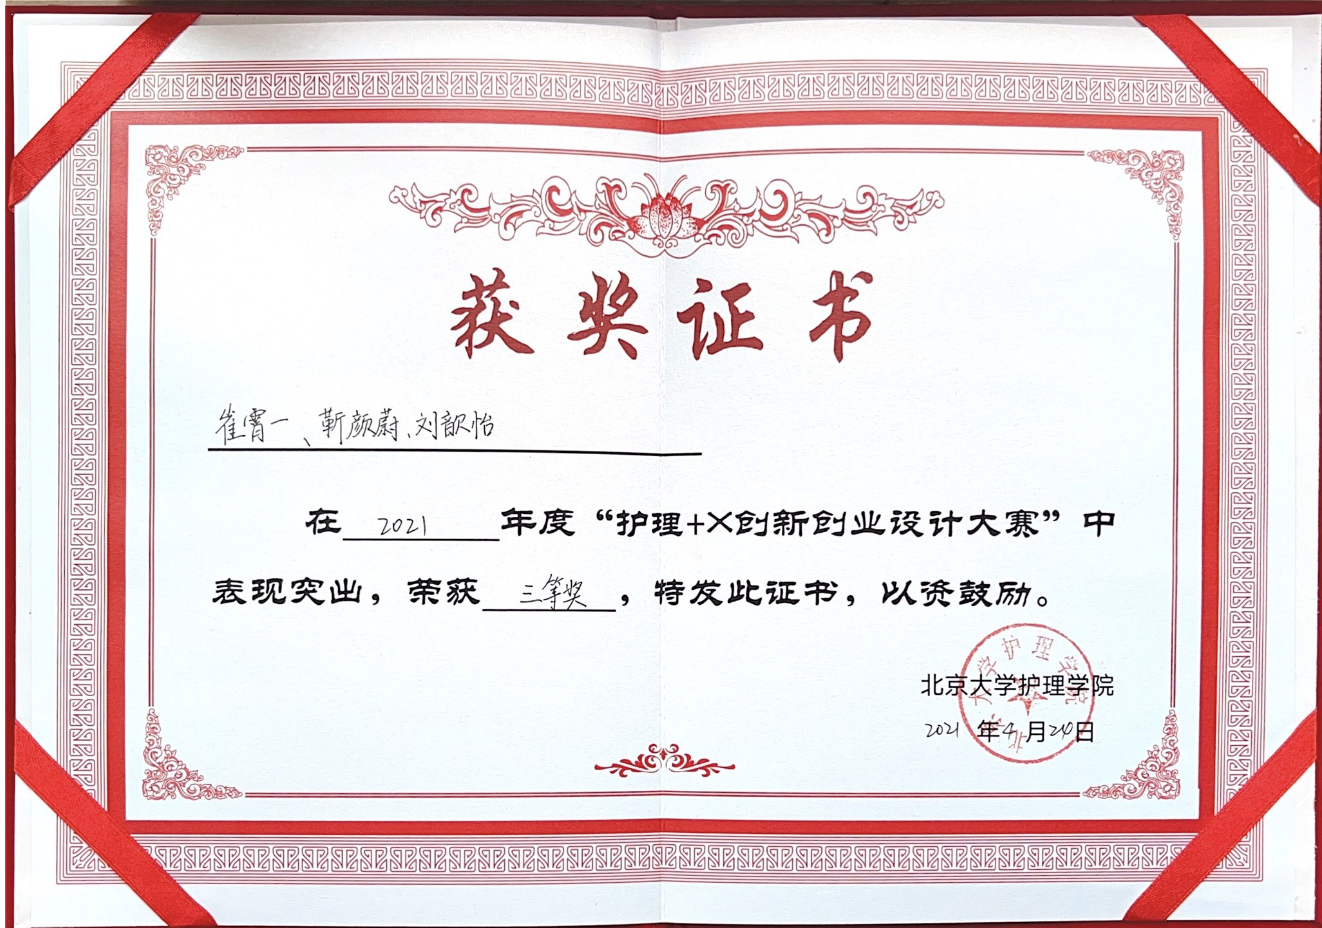 获奖证书
崔霄一、靳颜蔚、刘歆怡
在 2021 年度“护理+X创新创业设计大赛”中
表现突出，荣获 三等奖 ，特发此证书，以资鼓励。
北京大学护理学院
2021 年 4 月 24 日
北京大学护理学院